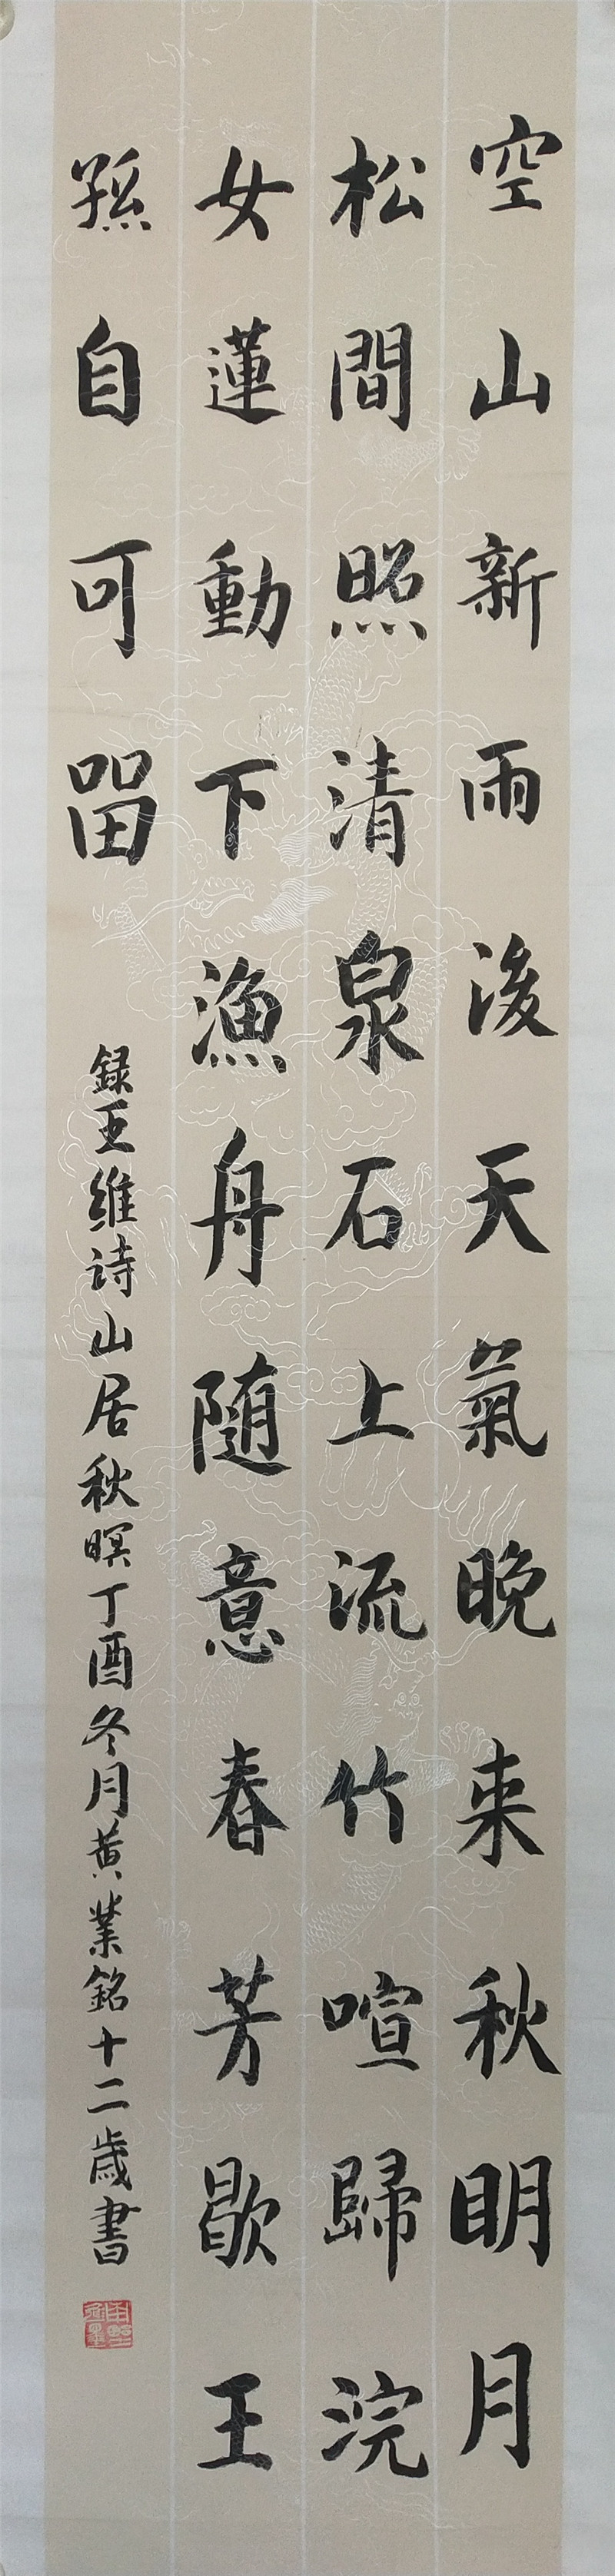 空山新雨後天氣晚来秋明月
松間照清泉石上流竹喧歸浣
女蓮動下漁舟随意春芳歇王
孫自可留
録王维诗山居秋暝丁酉冬月黄業銘十二歲書